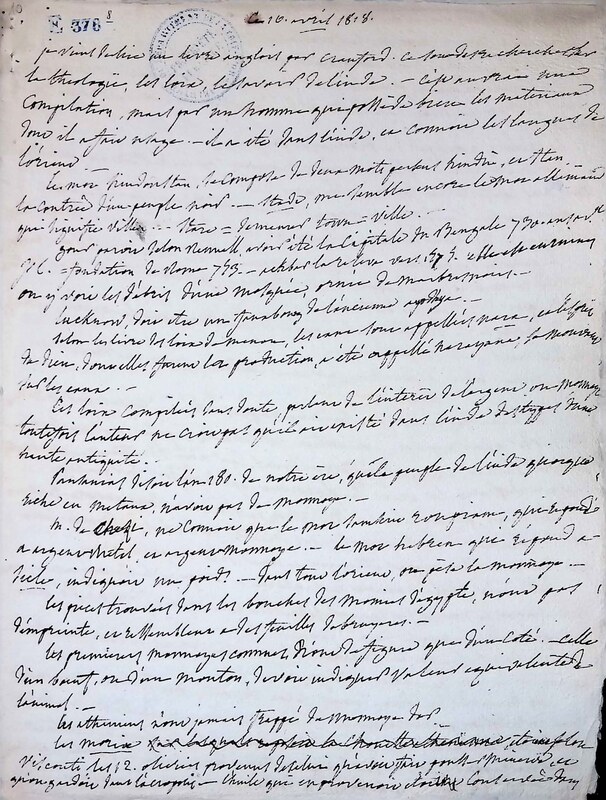 E 376 8
Le 16. avril 1818.
je viens de lire un livre anglois par Craufurd. ce sont des recherches sur
la theologie, les loix, le savoir de l'inde. — c'est au vrai une
compilation, mais par un homme qui possède bien les materiaux
dont il a fait usage. — il a été dans l'inde, et connoit les langues de
l'orient.
le mot hindoustan, se compose de deux mots persans hindu, et stan
la contrée d'un peuple noir. — stade, me semble encore le mot allemand
qui signifie ville. — stare = demeurer town = ville. —
gour paroit selon Rennell avoir été la Capitale du Bengale 730 ans av.
J.C. = fondation de Rome 753. — akbar la releva vers 1575. elle est en ruines
on y voit les débris d'une mosquée, ornée de marbres noirs. —
lucknow, doit etre un faubourg de l'ancienne —
selon les loix de menou, les eaux sont appellées nara, et l'esprit
de dieu, dont elles furent la production, a été appellé narayana, se mouvant
sur les eaux. —
Ces loix compilées sans doute, parlent de l'interet de l'argent ou monnoye
toutefois l'auteur ne croit pas qu'il ait existé dans l'inde des types d'une
haute antiquité. —
Pausanias dit l'an 180. de notre ère, que le peuple de l'inde quoique
riche en metaux, n'avoit pas de monnoye. —
M. de ne connoit que le mot qui repond
a argent metal et argent monnoye. — le mot hebreu qui repond a
sicle, indiquoit un poids — dans tout l'orient, on pèse la monnoye —
les pieces trouvées dans les bouches des momies d'egypte, n'ont pas
d'empreinte, et ressemblent a des feuilles de bruyeres. —
les premieres monnoyes connues n'ont de figure que d'un coté. — celle
d'un bœuf, ou d'un mouton, devoit indiquer valeur equivalente de
l'animal. —
les atheniens n'ont jamais frappé de monnoye d'or. —
les moriai etoient selon
Visconti les 12. oliviers provenus de celui qu'avoit fait pousser Minerve, et
qu'on gardoit dans l'acropolis — l'huile qui en provenoit etoit Conservée dans